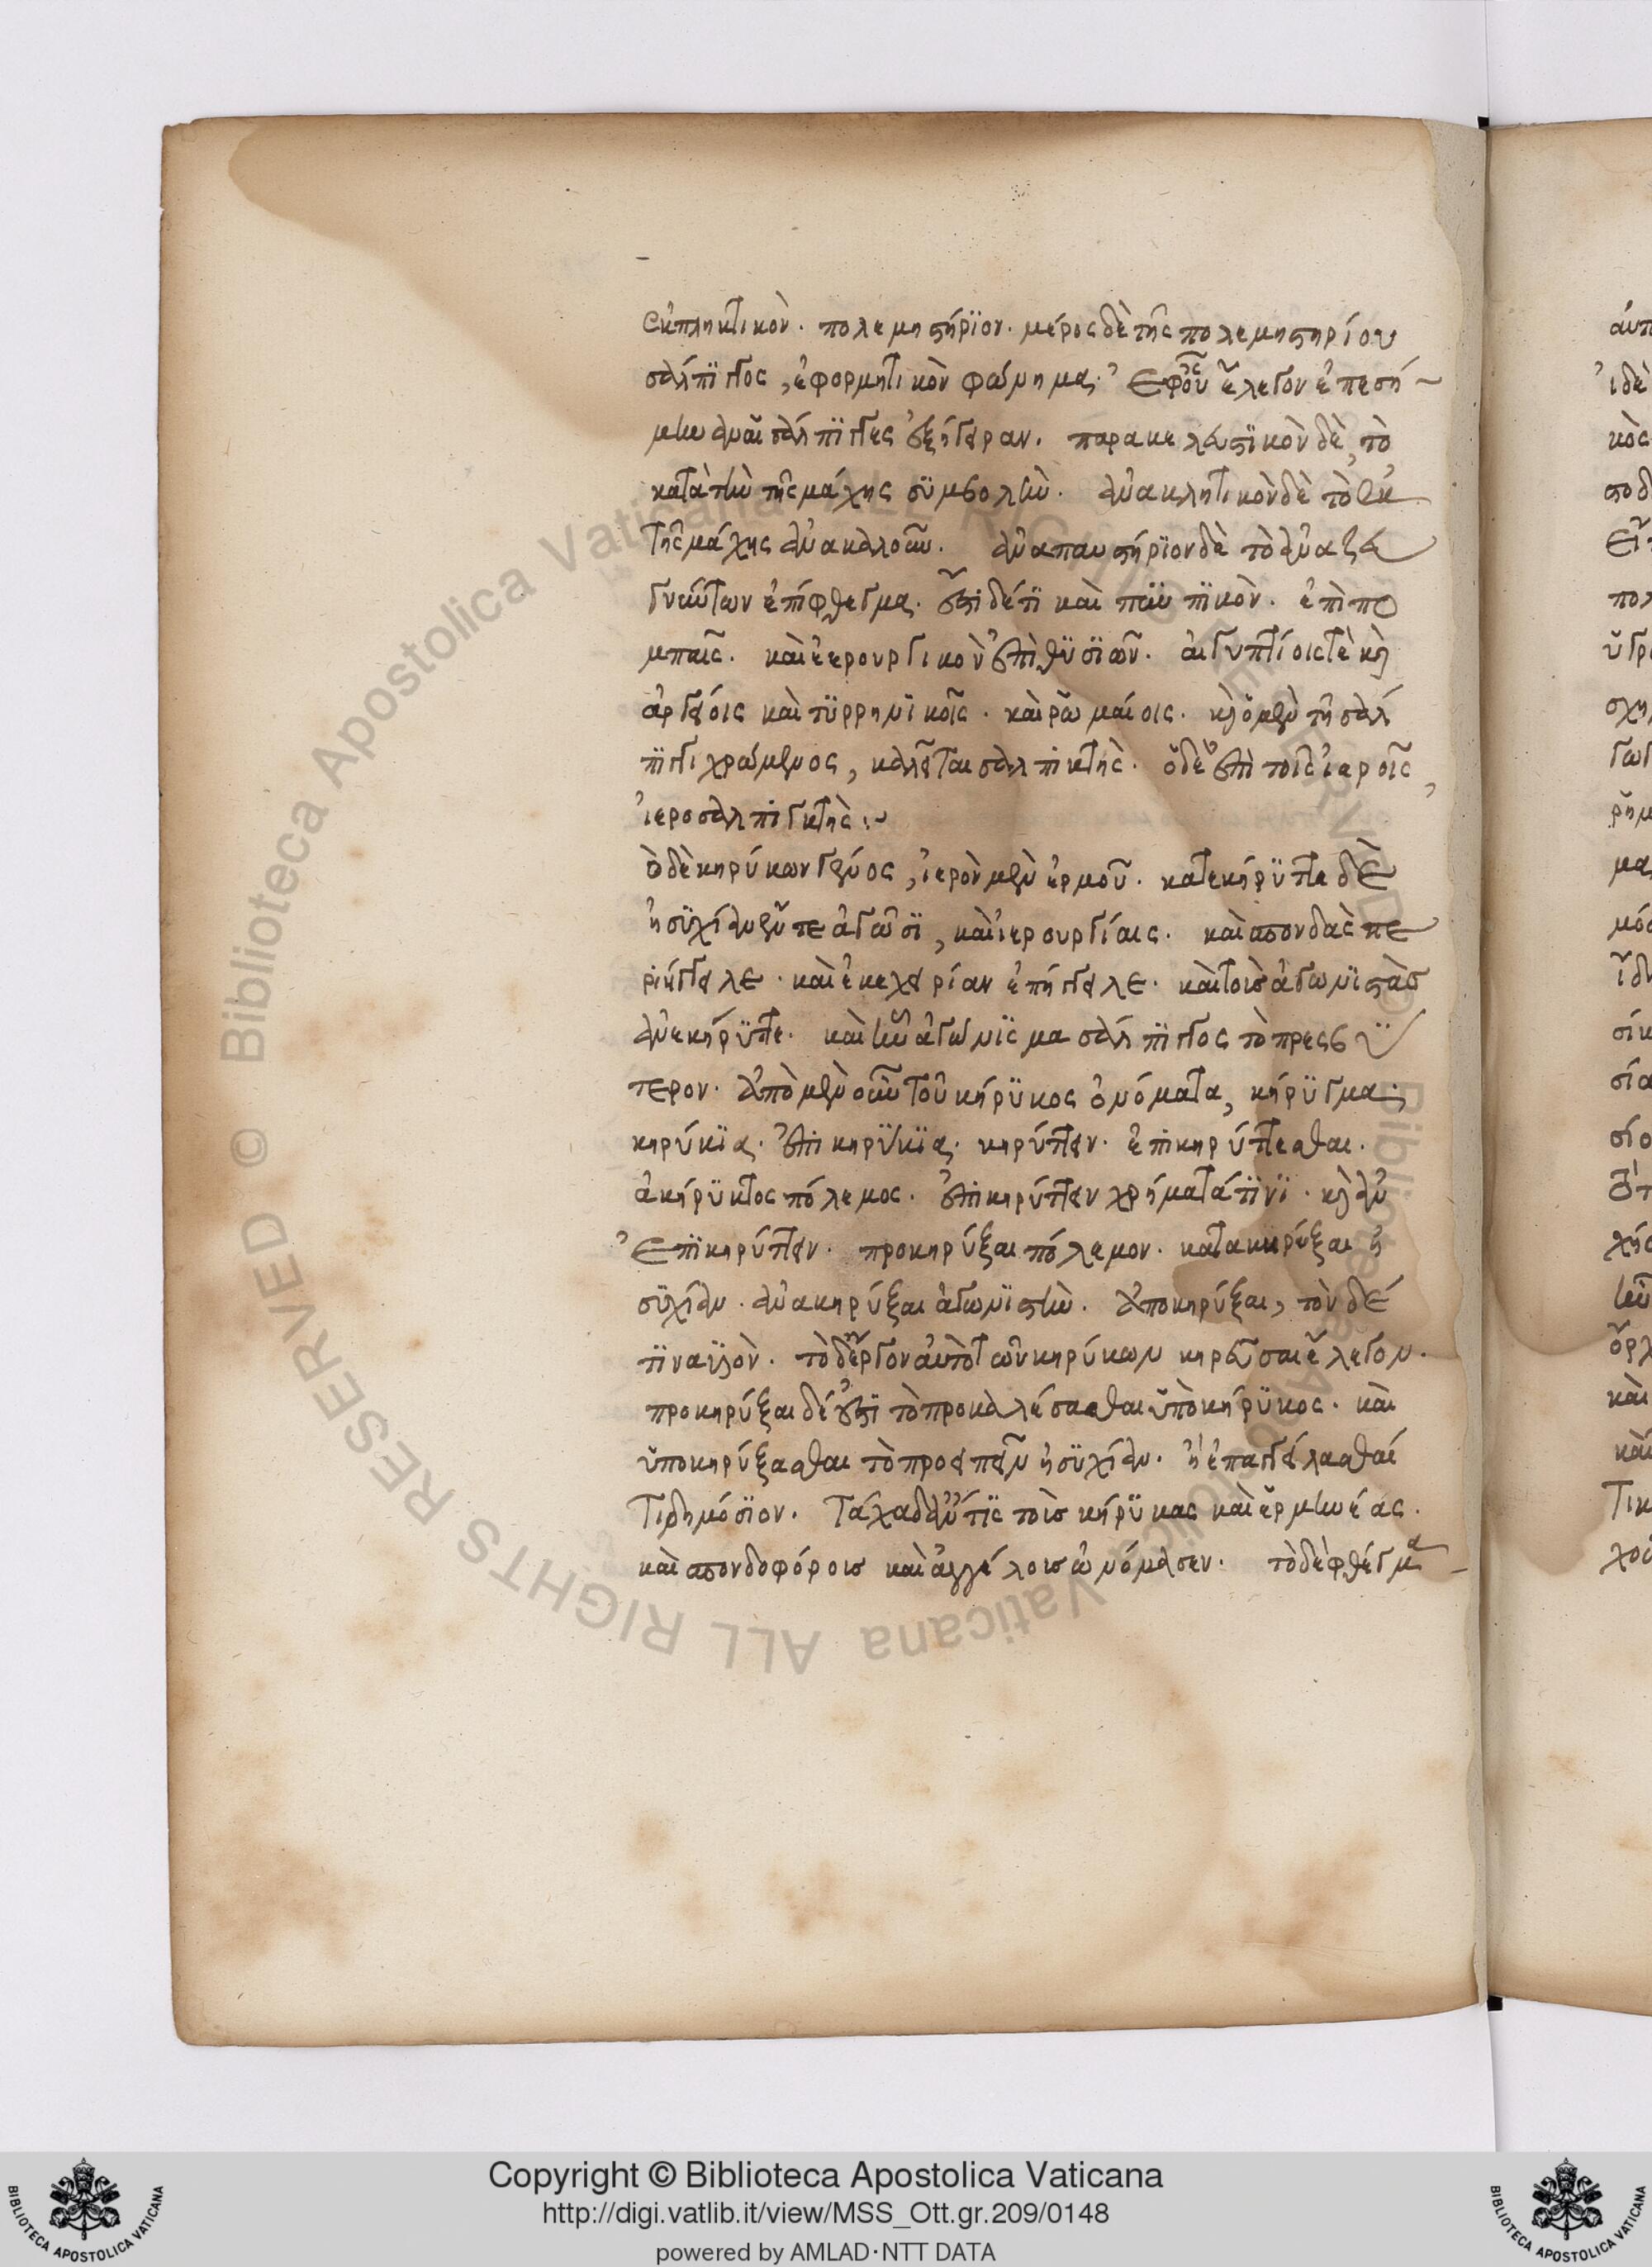 ἐκπληκτικὸν. πολεμιστήριον. μέρος δὲ τῆς πολεμιστηρίου
σάλπιγγος, ἐφορμητικὸν φώνημα. ἐφ οὗ ἔλεγον ἐπεσή
μηναν αἱ σάλπιγγες ἐξήγειραν. παρακελευστικὸν δὲ, τὸ
κατὰ τὴν τῆς μάχης συμβολὴν. ἀνακλητικὸν δὲ τὸ ἐκ
τῆς μάχης ἀνακαλοῦν. ἀναπαυστήριον δὲ τὸ ἀναζευ
γνύντων ἐπίφθεγμα. ἔστι δέ τι καὶ πομπικὸν. ἐπὶ πο
μπαῖς. καὶ ἱερουργικὸν ἐπὶ θυσιῶν. αἰγυπτίοις τὲ καὶ
ἀργείοις καὶ τυρρηνικοῖς. καὶ ῥωμαίοις. καὶ ὁ μὲν τῆ σάλ
πιγγι χρώμενος, καλεῖται σαλπικτὴς. ὁ δὲ ἐπὶ τοῖς ἱεροῖς,
ἱεροσαλπιγκτὴς:
ὁ δὲ κηρύκων γένος, ἱερὸν μὲν ἑρμοῦ. κατεκήρυττε δὲ
ἡσυχίαν ἔν τε ἀγῶσι, καὶ ἱερουργίαις. καὶ σπονδὰς πε
ριήγγειλε. καὶ ἐκεχειρίαν ἐπήγγειλε. καὶ τοὺς ἀγωνιστὰς
ἀνεκήρυττε. καὶ ἦν ἀγώνισμα σάλπιγγος τὸ πρεσβύ
τερον. ἀπὸ μὲν οὖν τοῦ κήρυκος ὀνόματα, κήρυγμα.
κηρύκια. ἐπικηρύκια. κηρύττειν. ἐπικηρύττεσθαι.
ἀκήρυκτος πόλεμος. ἐπικηρύττειν χρήματά τινι. καὶ ἀν
επικηρύττειν. προκηρύξαι πόλεμον. κατακηρύξαι ἡ
συχίαν. ἀνακηρύξαι ἀγωνιστὴν. ἀποκηρύξαι, τὸν δέ
τινα υἱὸν. τὸ δὲ ἔργον αὐτὸ τῶν κηρύκων κηρεῦσαι ἔλεγον.
προκηρύξαι δέ ἐστι τὸ προκαλέσασθαι ὑπὸ κήρυκος. καὶ
ὑποκηρύξασθαι τὸ προειπεῖν ἡσυχίαν. ἢ ἐπαγγείλασθαί
τι δημόσιον. τάχα δ ἄν τις τοὺς κήρυκας καὶ ἑρμηνέας.
καὶ σπονδοφόρους καὶ ἀγγέλους ὠνόμασεν. τὸ δὲ φθέγμα
Copyright © Biblioteca Apostolica Vaticana
http://digi.vatlib.it/view/MSS_Ott.gr.209/0148
powered by AMLAD·NTT DATA
BIBLIOTECA APOSTOLICA VATICANA
BIBLIOTECA APOSTOLICA VATICANA
Biblioteca Apostolica Vaticana ALL RIGHTS RESERVED ©
Biblioteca Apostolica Vaticana ALL RIGHTS RESERVED ©